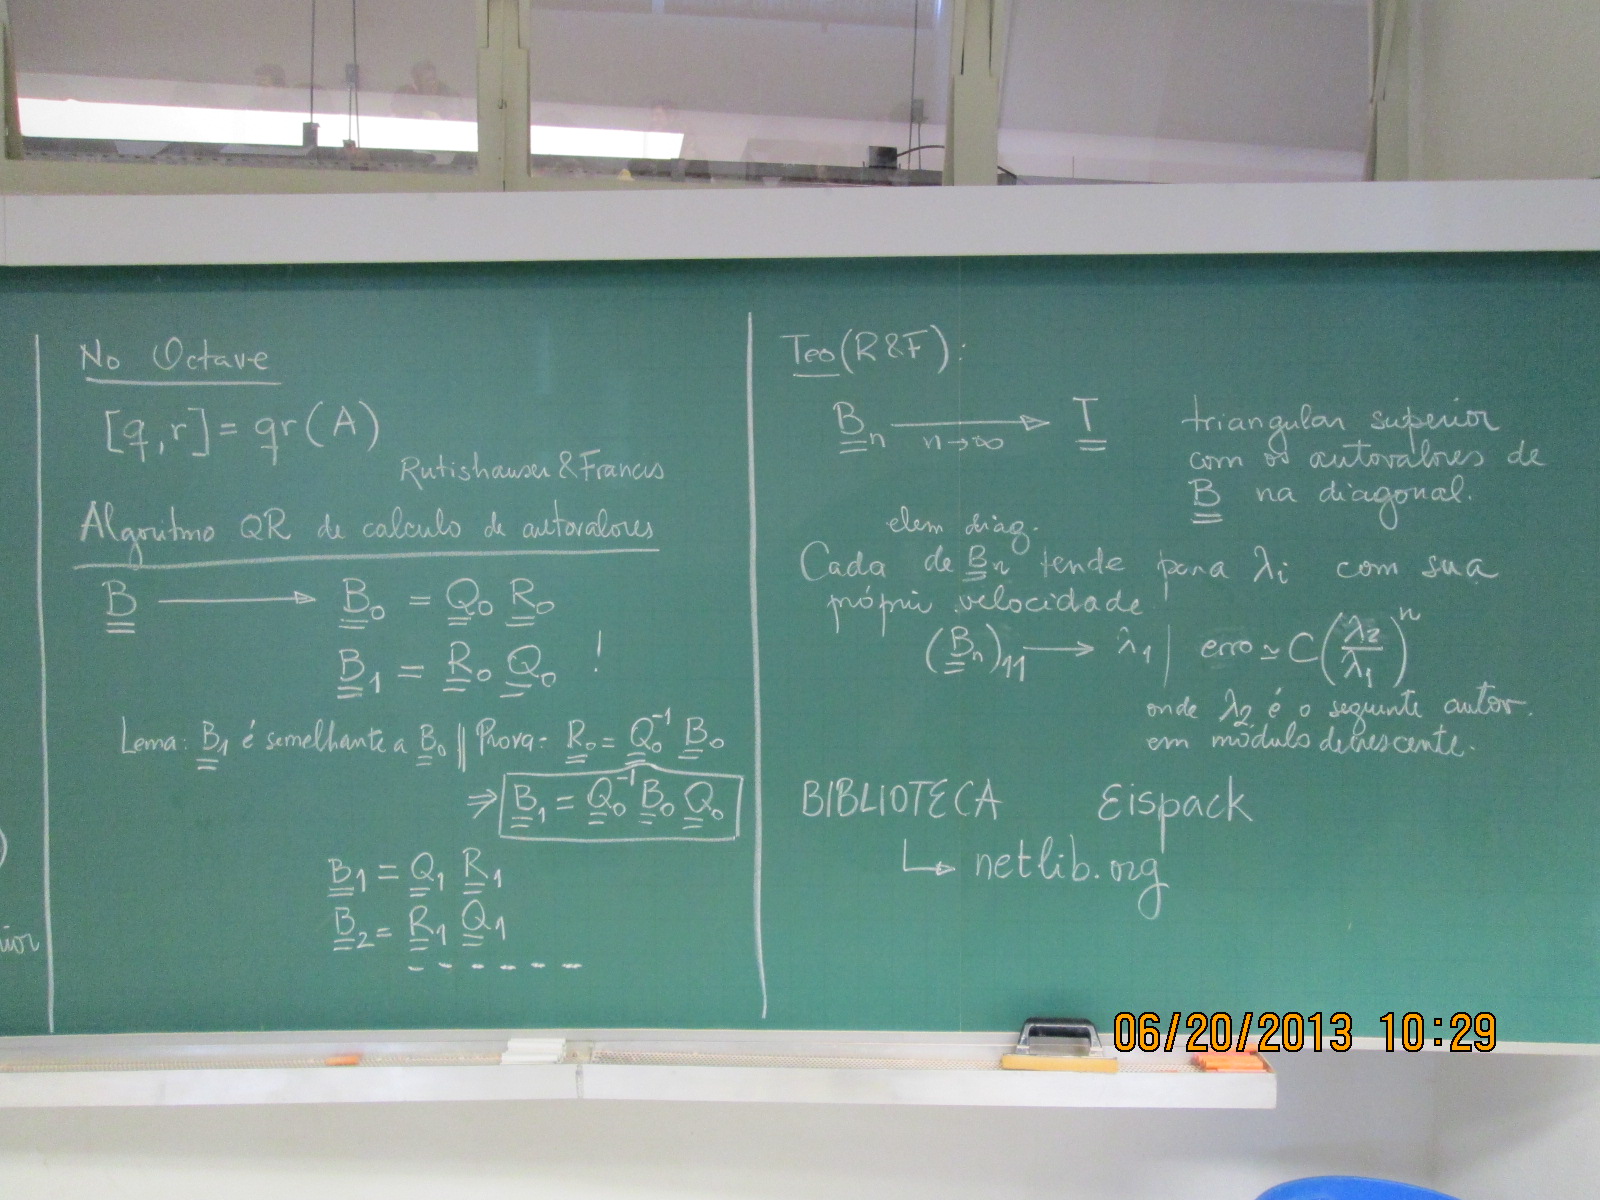 No Octave
[q,r] = qr(A)
Rutishauser & Francis
Algoritmo QR de calculo de autovalores
B → B₀ = Q₀ R₀
B₁ = R₀ Q₀ !
Lema: B₁ é semelhante a B₀ || Prova- R₀ = Q₀⁻¹ B₀
⇒ B₁ = Q₀⁻¹ B₀ Q₀
B₁ = Q₁ R₁
B₂ = R₁ Q₁
- - - - - -
Teo (R&F):
B_n → T
n→∞
triangular superior
com os autovalores de
B na diagonal.
elem diag.
Cada de B_n tende para λi com sua
própri velocidade
(B_n)₁₁ → λ₁ | erro ≃ C(λ₂/λ₁)ⁿ
onde λ₂ é o seguinte autov.
em módulo decrescente.
BIBLIOTECA Eispack
↳ netlib.org
06/20/2013 10:29